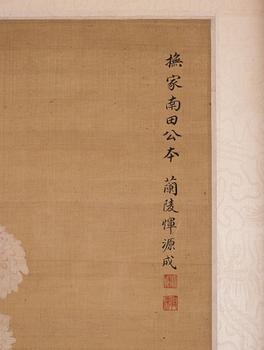 橅家南田公本 蘭陵惲源成